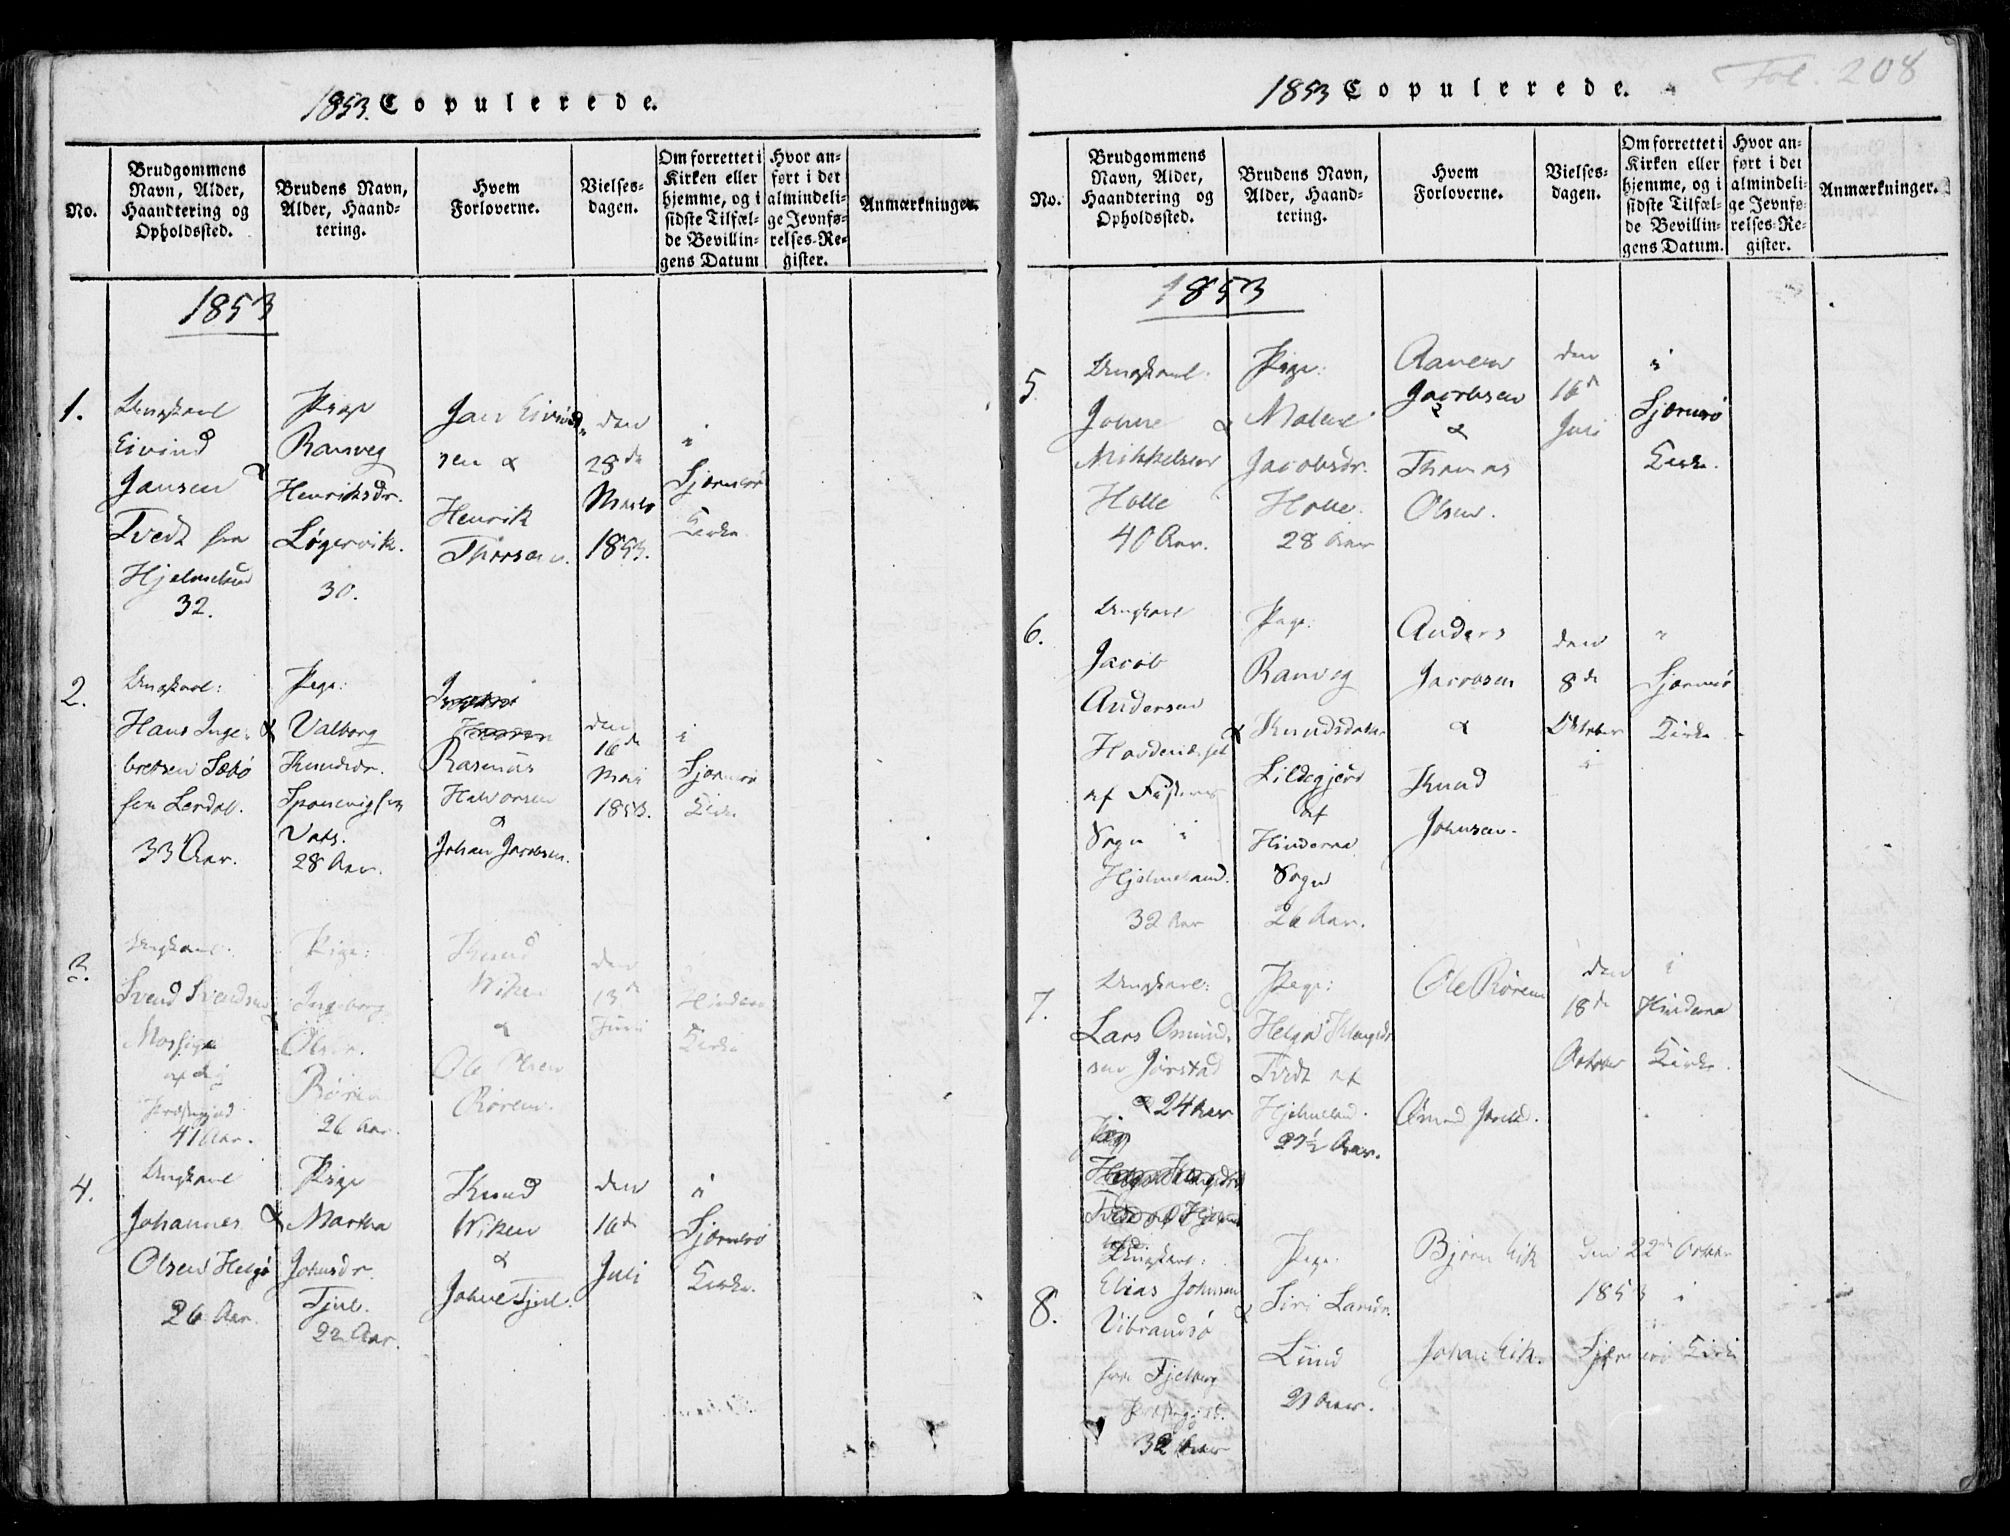 1853. Copulerede.
No.
Brudgommens
Navn, Alder,
Haandtering og
Opholdssted.
Brudens Navn,
Alder, Haand-
tering.
Hvem
Forloverne.
Vielses-
dagen.
Om forrettet i
Kirken eller
hjemme, og i
sidste Tilfæl-
de Bevillin-
gens Datum
Hvor an-
ført i det
almindeli-
ge Jevnfø-
relses-Re-
gister.
Anmærkninger.
1853
1.
Ungkarl
Eivind
Jansen &
Tvedt fra
Hjelmeland
32.
Pige
Ranveg
Henriksdr.
Løgervik.
30.
Jan Eivind-
sen &
Henrik
Thorsen.
den
28de
Marts
1853.
i
Sjærnerø
Kirke.
2.
Ungkarl:
Hans Inge- &
bretsen Sæbø
fra Lerdal.
33 Aar.
Pige:
Valborg
Knudsdr.
Vats.
28 Aar.
Rasmus
Halvorsen
&
Johan Jacobsen.
den
16de
Mai
1853.
i
Sjærnerø
Kirke.
3.
Ungkarl.
Svend Svendsen
Mossige
Præstegjeld
41 Aar.
Pige:
Ingeborg
Olsdr.
Røren
26 Aar.
Knud
Wiken
&
Ole Olsen
Røren.
den
13de
Juni
i
Hinderaa
Kirke
4.
Ungkarl
Johannes &
Olsen Helgø
26 Aar.
Pige
Martha
Johnsdr.
Tjul.
22 Aar.
Knud
Wiken
&
Johne Tjul.
den
16de
Juli
i
Sjærnerø
Kirke.
Fol. 208
1853 Copulerede.
No.
Brudgommens
Navn, Alder,
Haandtering og
Opholdssted.
Brudens Navn,
Alder, Haand-
tering.
Hvem
Forloverne.
Vielses-
dagen.
Om forrettet i
Kirken eller
hjemme, og i
sidste Tilfæl-
de Bevillin-
gens Datum.
Hvor an-
ført i det
almindeli-
ge Jevnfø-
relses-Re-
gister.
Anmærkninger.
1853
5
Ungkarl.
Johne &
Mikkelsen
Halle
40 Aar.
Pige:
Malene
Jacobsdr.
Halle.
28 Aar
Jacobsen
&
Thomas
Olsen.
den
16de
Juli
i
Sjærnerø
Kirke.
6.
Ungkarl
Jacob
Andersen
&
af
Sogn i
Hjelmeland.
32 Aar
Pige:
Ranveg
Knudsdatter
Lildegjerd
af
Hinderaa
Sogn
26 Aar.
Anders
Jacobsen
&
Knud
Johnsen.
den
8de
Oktober
i
Sjærnerø
Kirke.
7.
Ungkarl:
Lars Omund-
sen Jørstad
& 24 Aar
Pige:
Helga
Tvedt af
Hjelmeland.
27½ Aar.
Ole Røren
Omund Jørstad.
den
18de
October
i
Hinderaa
Kirke.
8.
Ungkarl:
Elias Johnsen
Vibrandsø &
fra Fjelberg
Præstegjeld.
32 Aar
Pige.
Siri Larsdr.
Lund
21 Aar.
Bjørn Eik
Johan Eik.
den 22de October
1853 i
Sjærnerø Kirke